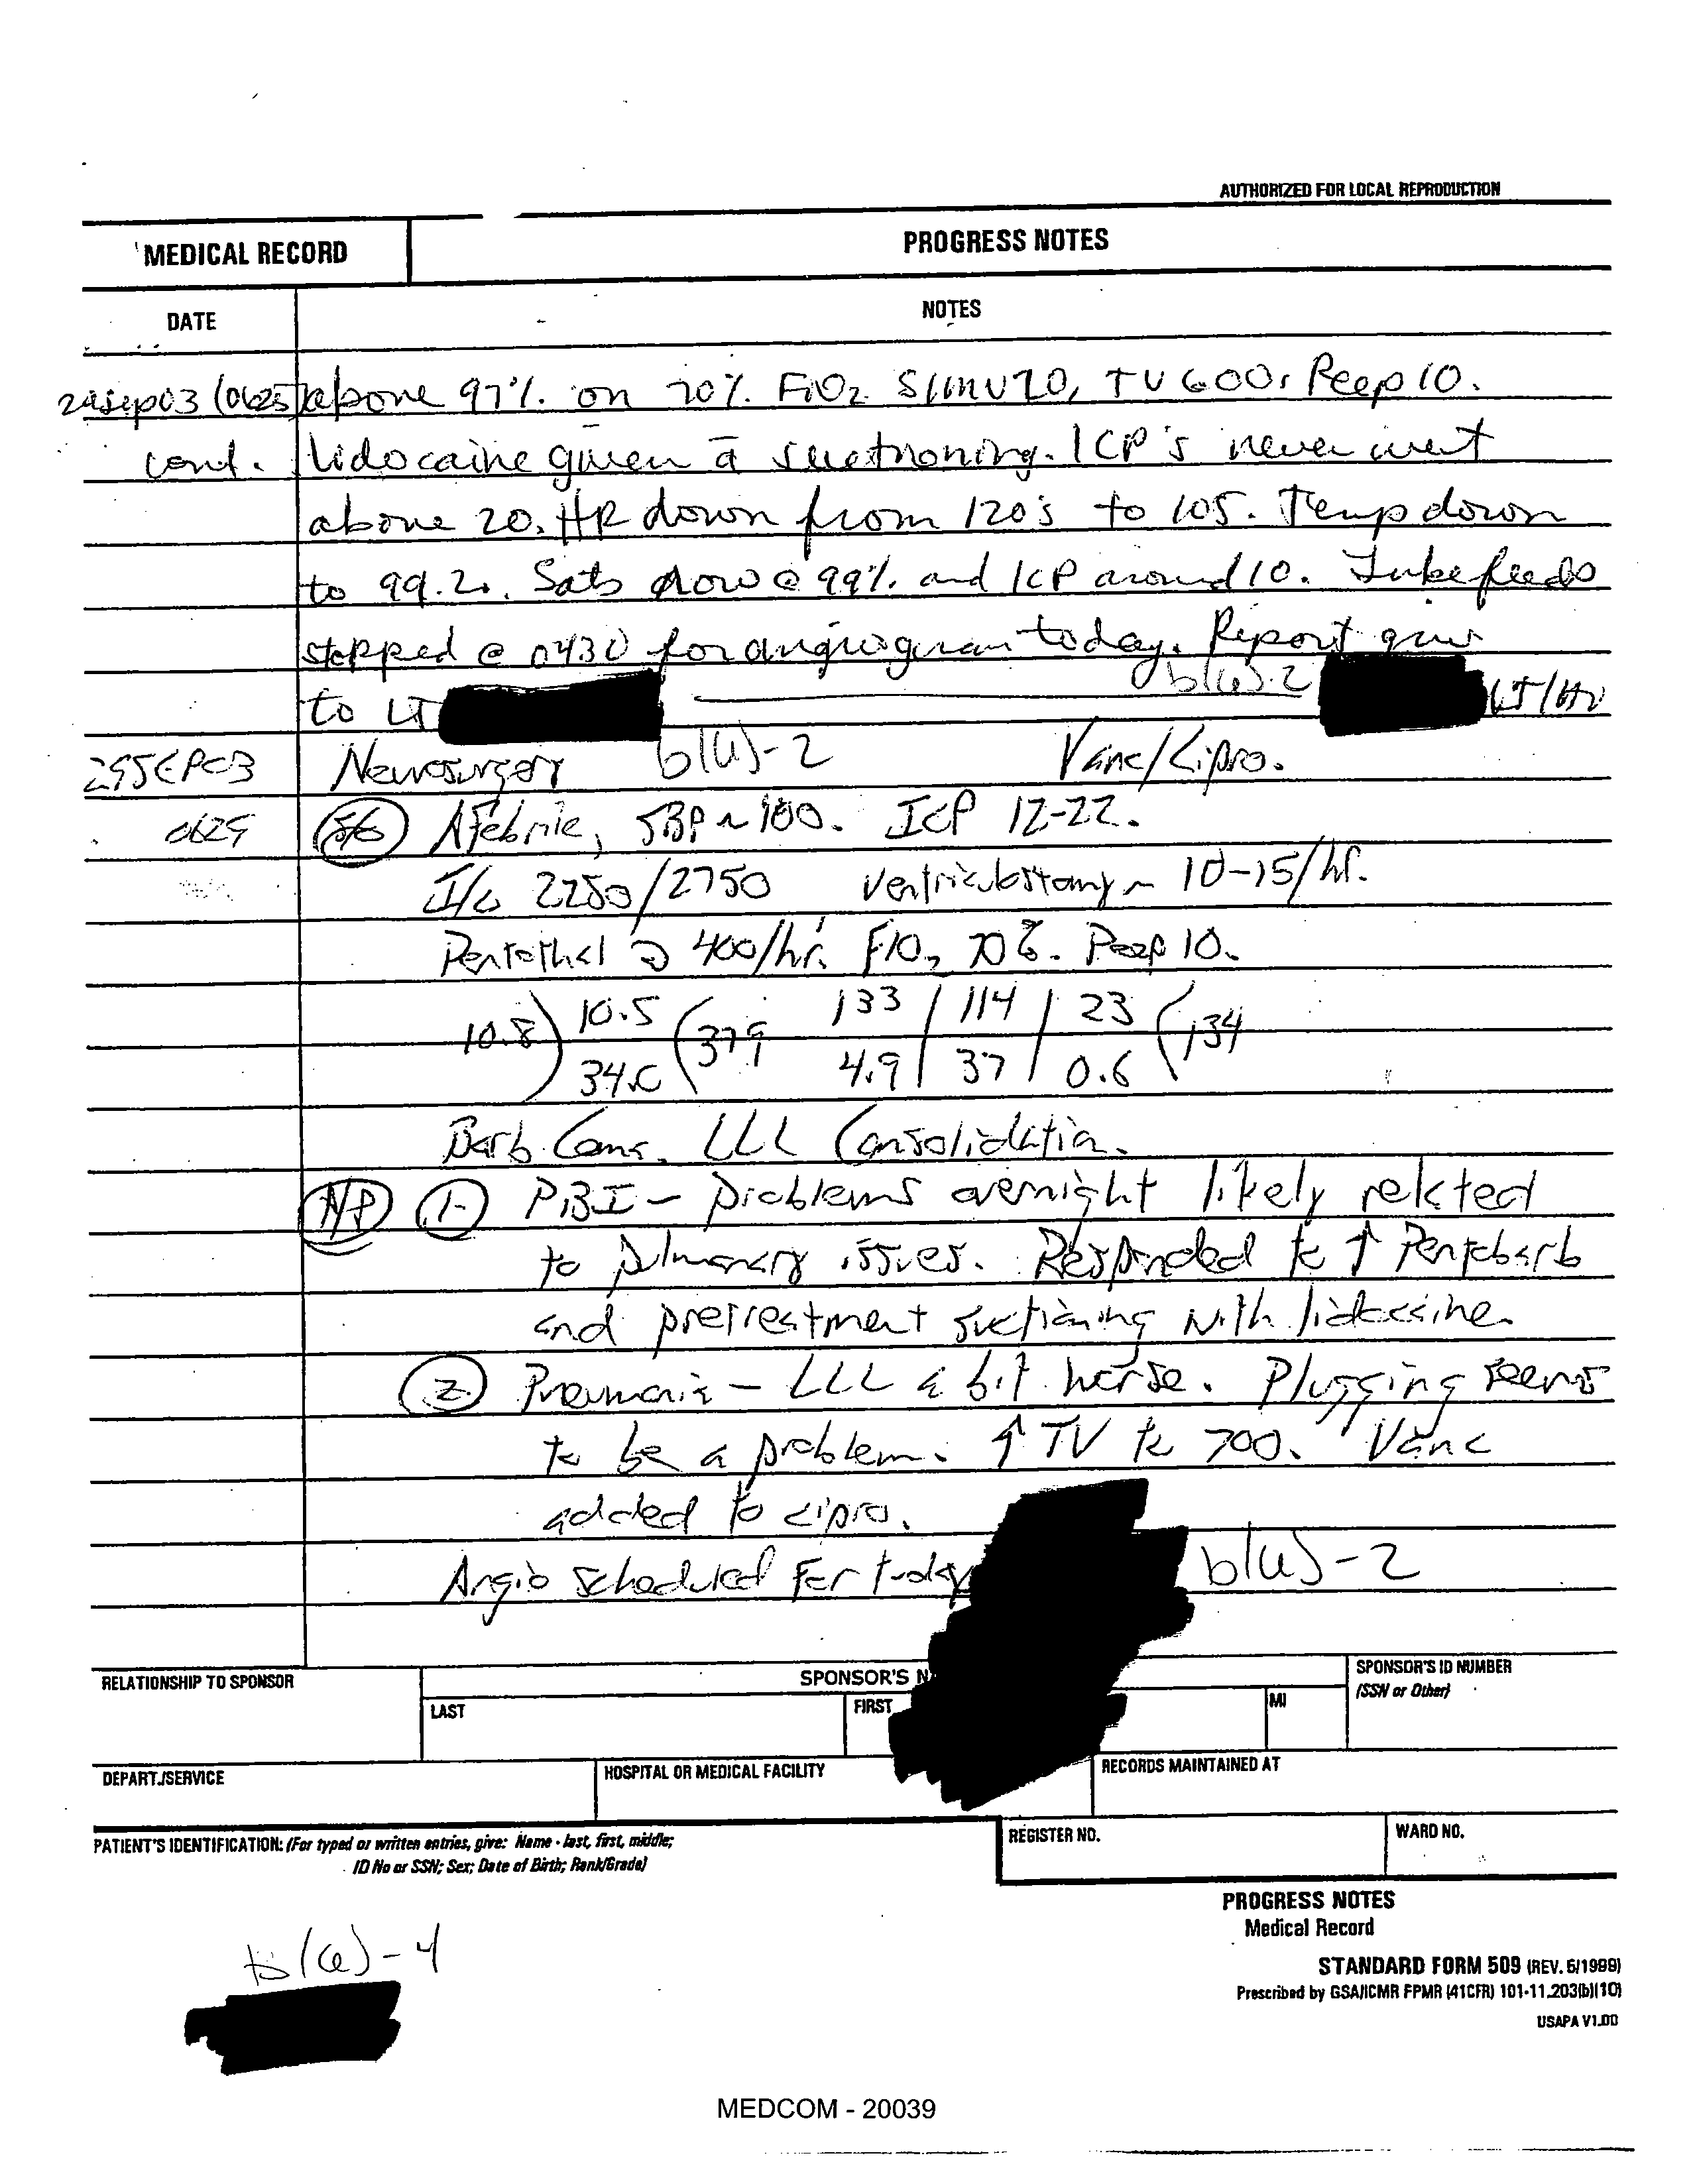 AUTHORIZED FOR LOCAL REPRODUCTION
MEDICAL RECORD
PROGRESS NOTES
DATE
NOTES
29Sep03 (0625) above 97% on 70% FiO2 SIMV20, TV 600, Peep 10.
cont. lidocaine given ā suctioning. ICP's never went
above 20. HR down from 120's to 105. Temp down
to 99.2. Sats now @ 99% and ICP around 10. Tube feeds
stopped @ 0430 for angiogram today. Report given
to LT b(6)-2 LT/
29SEP03 Neurosurgery b(6)-2 Vanc/Cipro.
0629 Afebrile, SBP ~ 100. ICP 12-22.
I/O 2250/2750 Ventriculostomy ~ 10-15/hr.
Pentothal @ 400/hr. FIO2 70%. Peep 10.
10.8 10.5 379 133 / 114 / 23 134
34.0 4.9 / 37 / 0.6
Barb Coma. LLL Consolidation.
A/P 1. PBI - problems overnight likely related
to pulmonary issues. Responded to ↑ Pentobarb
and pretreatment suctioning with lidocaine.
2. Pneumonia - LLL a bit worse. Plugging seems
to be a problem. ↑ TV to 700. Vanc
added to cipro.
Angio scheduled for today b(6)-2
RELATIONSHIP TO SPONSOR
SPONSOR'S N
SPONSOR'S ID NUMBER
(SSN or Other)
LAST
FIRST
MI
DEPART./SERVICE
HOSPITAL OR MEDICAL FACILITY
RECORDS MAINTAINED AT
PATIENT'S IDENTIFICATION: (For typed or written entries, give: Name - last, first, middle;
ID No or SSN; Sex; Date of Birth; Rank/Grade)
REGISTER NO.
WARD NO.
PROGRESS NOTES
Medical Record
STANDARD FORM 509 (REV. 6/1999)
Prescribed by GSA/ICMR FPMR (41CFR) 101-11.203(b)(10)
USAPA V1.00
b(6)-4
MEDCOM - 20039